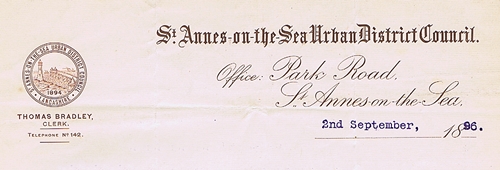 St Annes-on-the-Sea Urban District Council.
Office: Park Road.
St Annes-on-the-Sea.
2nd September, 1896.
ST ANNES-ON-THE-SEA URBAN DISTRICT COUNCIL
1894
LANCASHIRE
THOMAS BRADLEY,
CLERK.
TELEPHONE No 142.